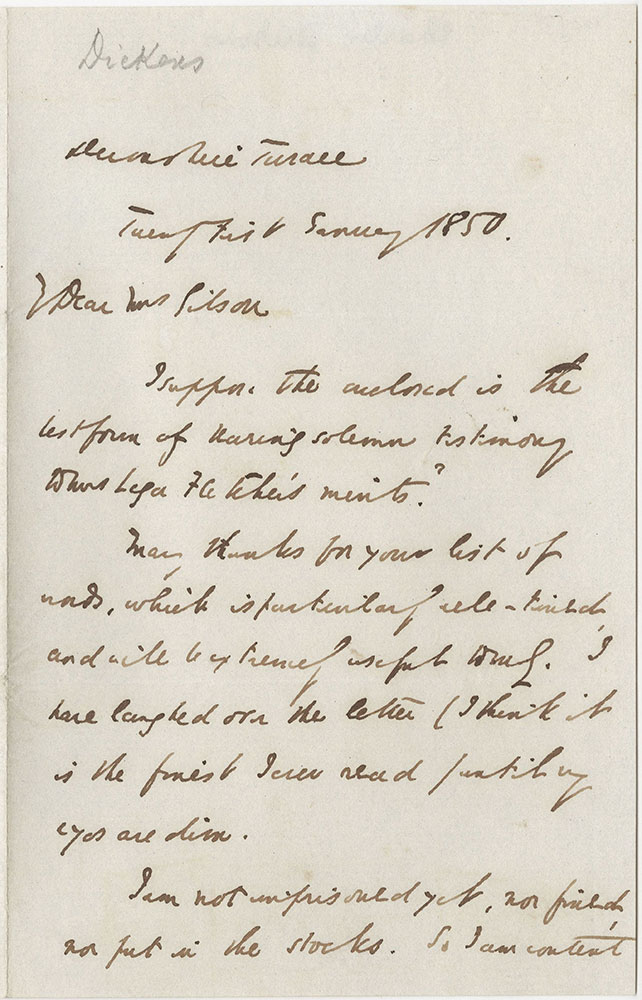 Dickens
Devonshire Terrace
Twenty First January 1850.
Dear Mrs Gibson
I suppose the enclosed is the
best form of bearing solemn testimony
to Mrs Fletcher's merits?
Many thanks for your list of
words, which is particularly well-timed,
and will be extremely useful to me. I
have laughed over the letter (I think it
is the finest I ever read) until my
eyes are dim.
I am not imprisoned yet, nor fined,
nor put in the stocks. So I am content